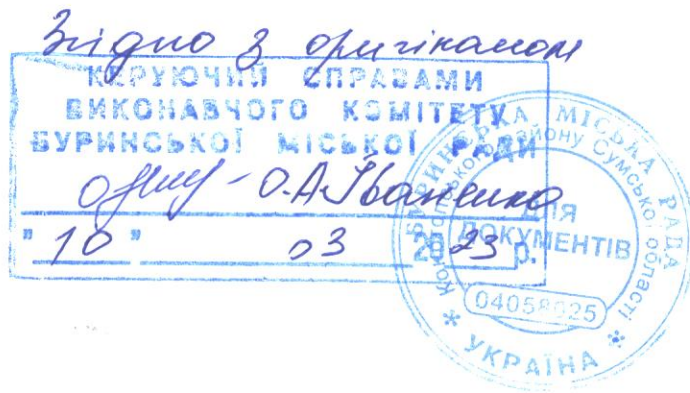 Згідно з оригіналом
КЕРУЮЧИЙ СПРАВАМИ
ВИКОНАВЧОГО КОМІТЕТУ
БУРИНСЬКОЇ МІСЬКОЇ РАДИ
О.А.Іваненко
"10" 03 2023 р.
БУРИНСЬКА МІСЬКА РАДА
Конотопського району Сумської області
ДЛЯ
ДОКУМЕНТІВ
04058025
* УКРАЇНА *